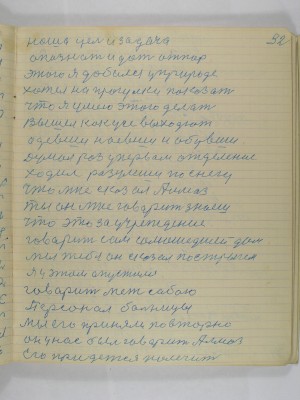 92
наша цель и задача
опочнат и дат отпар
этого я добился у природе
хотел на прогулки показат
что я умею этого делат
вышел как усе выходют
одевши наевши и обувши
думал раз упервом отделение
ходил разувшим по снегу
что мне сказал Алмаз
ты он мне говорит знаеш
что это за учреждение
говорит сам сумашедшей дом
мы тебя он сказал пострыгем
я у этом опустил
говорит мет сабою
Персонал больницы
мы его приняли повторно
он у нас был говарит Алмаз
его придется полечит